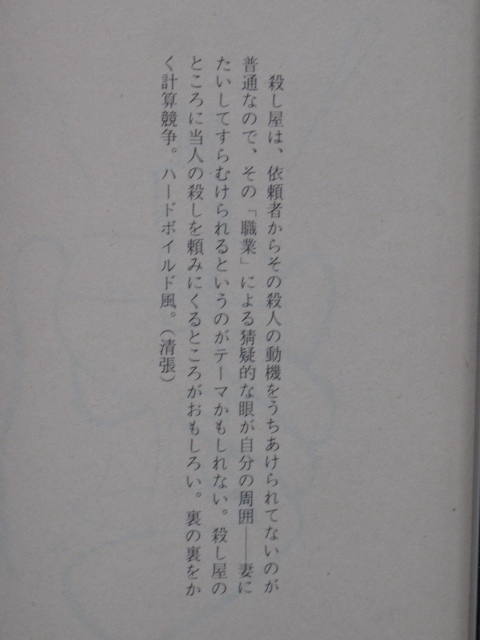 殺し屋は、依頼者からその殺人の動機をうちあけられてないのが
普通なので、その「職業」による猜疑的な眼が自分の周囲――妻に
たいしてすらむけられるというのがテーマかもしれない。殺し屋の
ところに当人の殺しを頼みにくるところがおもしろい。裏の裏をか
く計算競争。ハードボイルド風。（清張）